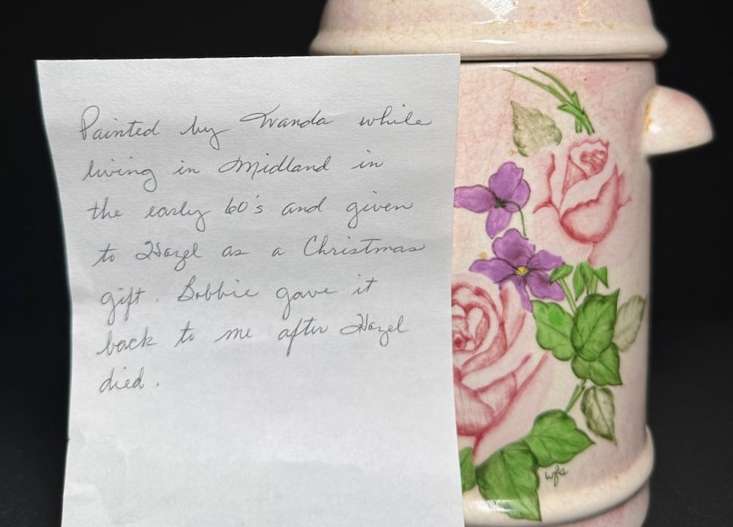 Painted by Wanda while
living in Midland in
the early 60's and given
to Hazel as a Christmas
gift. Bobbie gave it
back to me after Hazel
died.